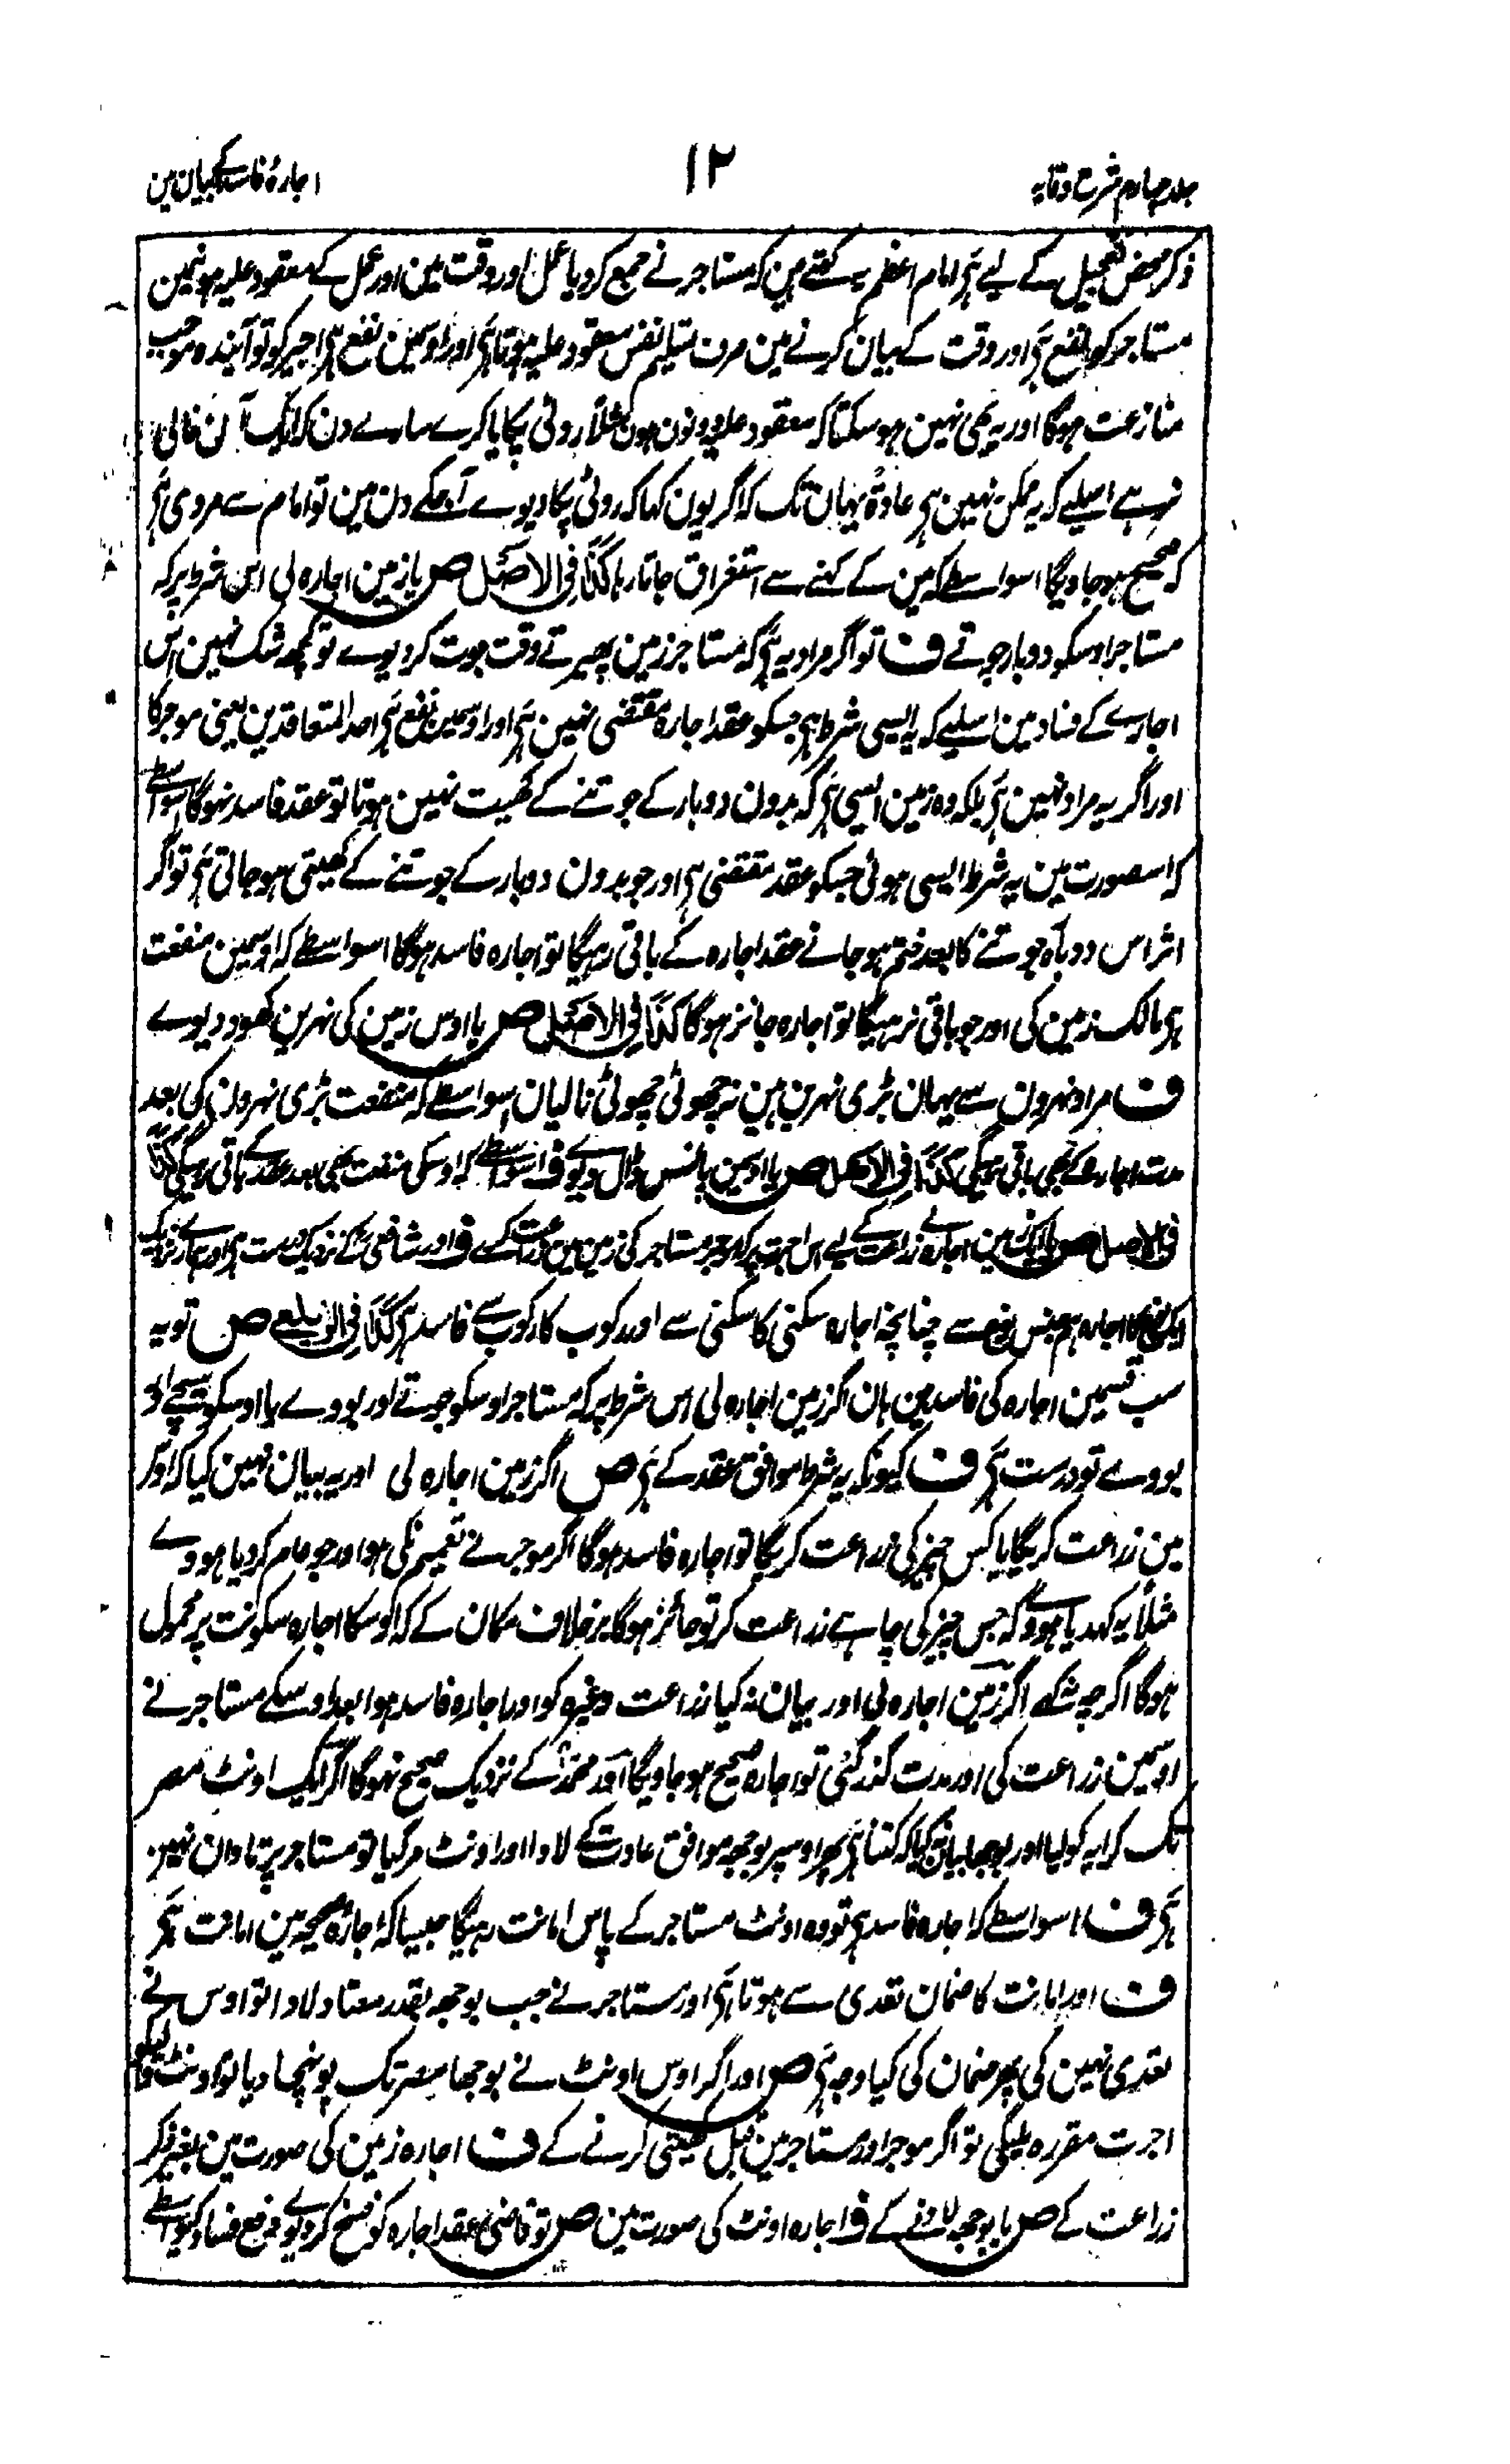 جلد چہارم شرح وقایہ
۱۲
اجارۂ فاسد کے بیان مین
ذکر محض تعجیل کے لیے ہی امام اعظم یہ کہتے ہین کہ مستاجر نے جمع کر دیا عمل اور وقت مین اور عمل کے معقود علیہ ہونیمین
مستاجر کو نفع ہی اور وقت کے بیان کرنے مین صرف تسلیم نفس معقود علیہ ہوتا ہی اور اوسمین نفع ہی اجیر کو تو آیندہ موجب
منازعت ہوگا اور یہ بھی نہین ہو سکتا کہ معقود علیہ دونون ہون مثلاً روٹی پکایا کرے سارے دن کہ ایک آن خالی
نرہے اسلیے کہ یہ ممکن نہین ہی عادۃً یہان تک کہ اگر یون کہا کہ روٹی پکا دیوے آجکے دن مین تو امام سے مروی ہی
کہ صحیح ہو جاویگا اسواسطے کہ مین کے کہنے سے استغراق جاتا رہا کذا فی الاصل ص یا زمین اجارہ لی اس شرط پر کہ
مستاجر اوسکو دوبار جوتے ف تو اگر مراد یہ ہی کہ مستاجر زمین پھیرتے وقت جوت کر دیوے تو کچھ شک نہین اس
اجارے کے فساد مین اسلیے کہ یہ ایسی شرط ہی جسکو عقد اجارہ مقتضی نہین ہی اور اوسمین نفع ہی احد المتعاقدین یعنی موجر کا
اور اگر یہ مراد نہین ہی بلکہ وہ زمین ایسی ہی کہ بدون دوبار کے جوتنے کے کھیت نہین ہوتا تو عقد فاسد نہوگا اسواسطے
کہ اسصورت مین یہ شرط ایسی ہوئی جسکو عقد مقتضی ہی اور جو بدون دوبار کے جوتنے کے کھیتی ہو جاتی ہی تو اگر
اثر اس دوبارہ جوتنے کا بعد ختم ہو جانے عقد اجارہ کے باقی رہیگا تو اجارہ فاسد ہوگا اسواسطے کہ اوسمین منفعت
ہی مالک زمین کی اور جو باقی نرہیگا تو اجارہ جائز ہوگا کذا فی الاصل ص یا اوس زمین کی نہرین کھود دیوے
ف مراد نہرون سے یہان بڑی نہرین ہین نہ چھوٹی چھوٹی نالیان اسواسطے کہ منفعت بڑی نہرون کی بعد
مدت اجارہ کے بھی باقی رہیگی کذا فی الاصل ص یا اوسمین پانس ڈال دیوے ف اسواسطے کہ اوسکی منفعت بھی بعد عقد کے باقی رہیگی کذا
فی الاصل ص یا ایک زمین اجارے لے زراعت کے لیے اس اجرت پر کہ موجر مستاجر کی زمین مین زراعت کرے ف اور شافعی کے نزدیک درست ہی اور ہمارے نزدیک
ایک نفع کا اجارہ ہم جنس نفع سے چنانچہ اجارہ سکنی کا سکنی سے اور رکوب کا رکوب سے فاسد ہی کذا فی الزیلعی ص تو یہ
سب قسمین اجارہ کی فاسد ہین ہان اگر زمین اجارہ لی اس شرط پر کہ مستاجر اوسکو جوتے اور بووے یا اوسکو سینچے اور
بووے تو درست ہی ف کیونکہ یہ شرط موافق عقد کے ہی ص اگر زمین اجارہ لی اور یہ بیان نہین کیا کہ اوس
مین زراعت کریگا یا کس چیز کی زراعت کریگا تو اجارہ فاسد ہوگا اگر موجر نے تعمیم نکی ہو اور جو عام کر دیا ہووے
مثلاً یہ کہدیا ہووے کہ جس چیز کی چاہے زراعت کر تو جائز ہوگا برخلاف مکان کے کہ اوسکا اجارہ سکونت پر محمول
ہوگا اگرچہ نہ کہے اگر زمین اجارہ لی اور بیان نہ کیا زراعت وغیرہ کو اور اجارہ فاسد ہوا بعد اوسکے مستاجر نے
اوسمین زراعت کی اور مدت گذر گئی تو اجارہ صحیح ہو جاویگا اور محمد کے نزدیک صحیح نہوگا اگر ایک اونٹ مصر
تک کرایہ کو لیا اور بوجھا بیان نہ کیا کہ کتنا ہی پھر اوسپر بوجھ موافق عادت کے لادا اور اونٹ مر گیا تو مستاجر پر تاوان نہین
ہی ف اسواسطے کہ اجارہ فاسد ہی تو وہ اونٹ مستاجر کے پاس امانت رہیگا جیسا کہ اجارۂ صحیحہ مین امانت ہی
ف اور امانت کا ضمان تعدی سے ہوتا ہی اور مستاجر نے جب بوجھ بقدر معتاد لادا تو اوس نے
تعدی نہین کی پھر ضمان کی کیا وجہ ہی ص اور اگر اوس اونٹ نے بوجھا مصر تک پونہچا دیا تو اونٹ والیکو
اجرت مقررہ ملیگی تو اگر موجر اور مستاجر مین قبل کھیتی کرنے کے ف اجارہ زمین کی صورت مین بغیر ذکر
زراعت کے ص یا بوجھ لادنے کے ف اجارہ اونٹ کی صورت مین ص تو قاضی عقد اجارہ کو فسخ کر دیوے دفع فساد کیواسطے